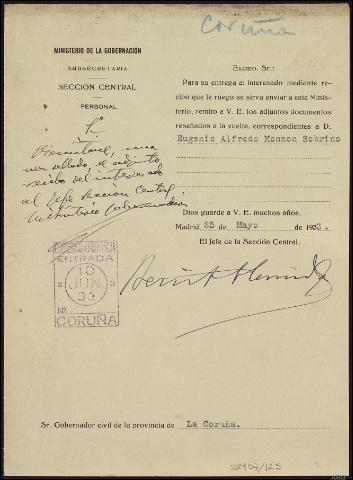 Coruña
MINISTERIO DE LA GOBERNACIÓN
SUBSECRETARIA
SECCION CENTRAL
PERSONAL
Excmo. Sr.:
Para su entrega al interesado mediante re-
cibo que le ruego se sirva enviar a este Minis-
terio, remito a V. E. los adjuntos documentos
reseñados a la vuelta, correspondientes a D.
Eugenio Alfredo Manzon Sobrino
el adjunto
recibo del interesado
al Jefe Sección Central
Ministerio Gobernación
Dios guarde a V. E. muchos años.
Madrid 25 de Mayo de 1933.
El Jefe de la Sección Central,
ENTRADA
10
JUN.
33
Nº
CORUÑA
Sr. Gobernador civil de la provincia de La Coruña.